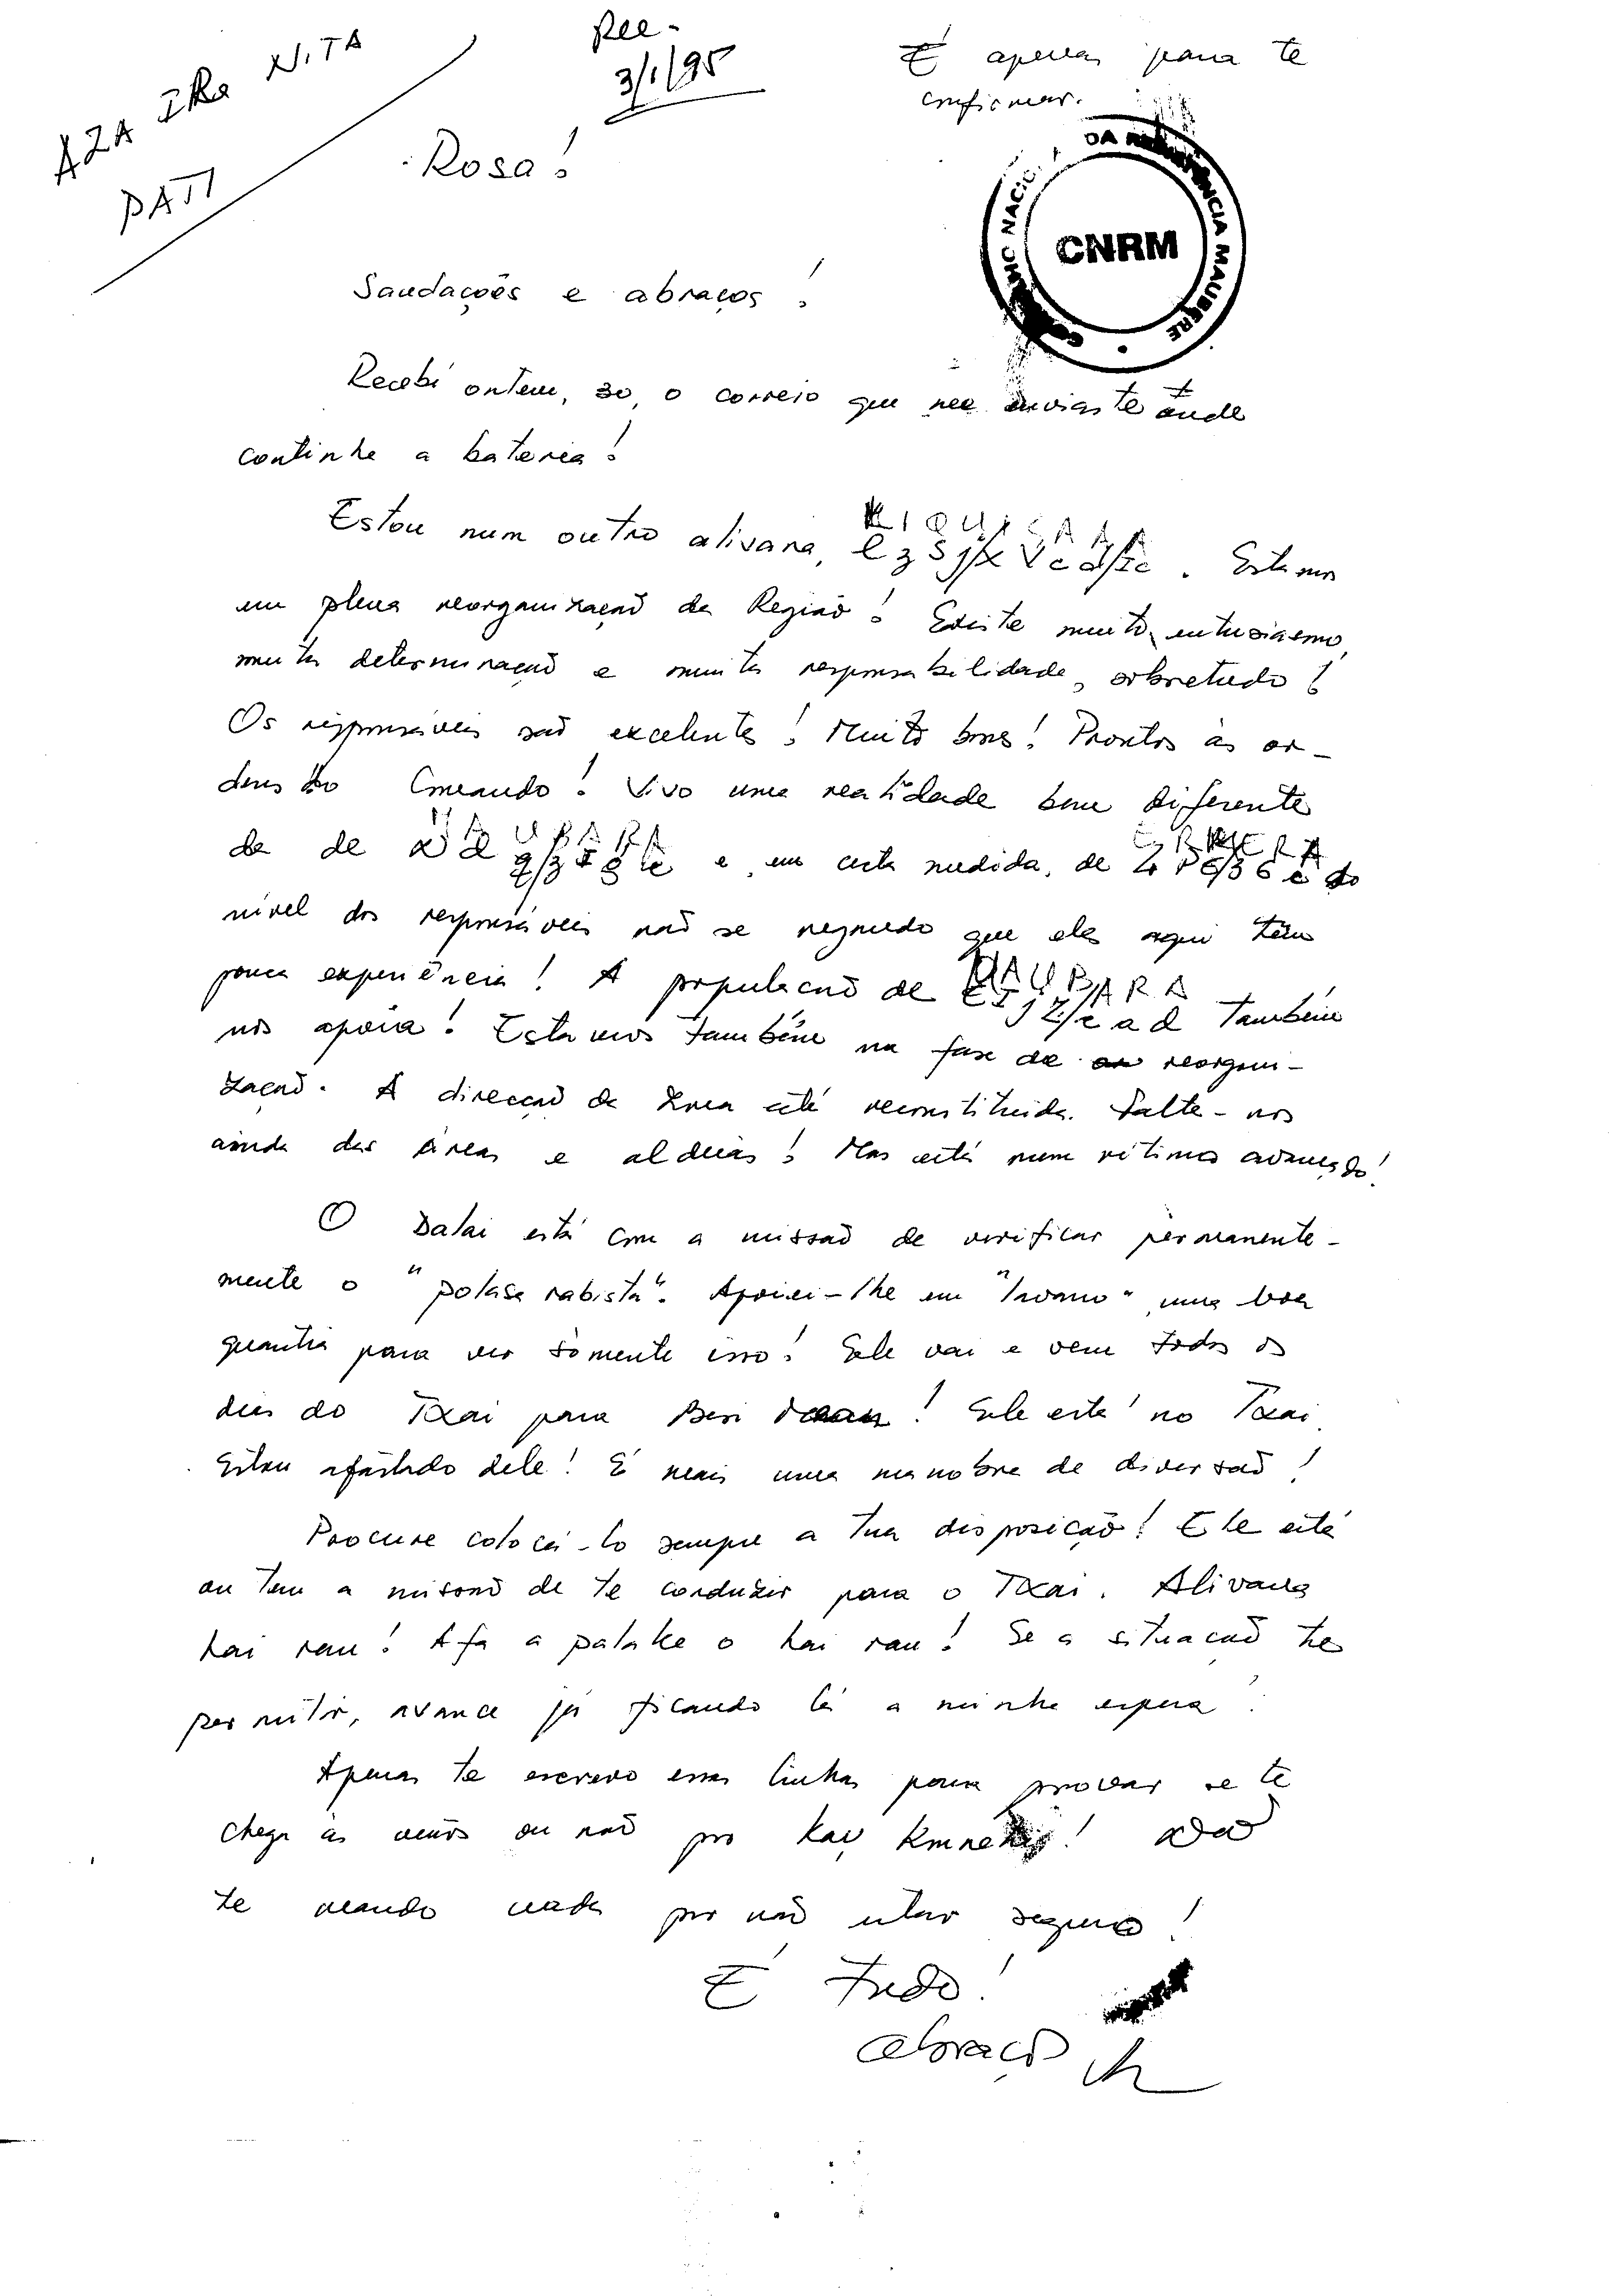 Rec.
3/1/95
É apenas para te
confirmar.
Rosa!
CNRM
DA RESISTÊNCIA MAUBERE
Saudações e abraços!
Recebi ontem, 30, o correio que me enviaste onde
continha a bateria!
Estou num outro alivana, . Estamos
em plena reorganização da Região! Existe muito entusiasmo,
muita determinação e muita responsabilidade, sobretudo!
Os responsáveis são excelentes! Muito bons! Prontos às or-
dens do Comando! Vivo uma realidade bem diferente
da de e, em certa medida, de do
nível dos responsáveis não se que eles aqui têm
pouca experiência! A população de MAUBARA também
nos apoia! Estamos também na fase de reorgani-
zação. A direcção da Zona está reconstituída. Falta-nos
ainda das áreas e aldeias! Mas está num ritmo avançado!
O Dalai está com a missão de verificar permanente-
mente o "polisa rabista". Apoiei-lhe em uma boa
quantia para ver somente isso! Ele vai e vem todos os
dias do Taxai para ! Ele está no Taxai.
Estou afastado dele! É mais uma manobra de diversão!
Procure colocá-lo sempre a tua disposição! Ele está
ou tem a missão de te conduzir para o . Alivana
hai rau! A fa a palake o hai rau! Se a situação te
permitir, avance já ficando lá a minha espera.
Apenas te escrevo essas linhas para provar se te
chega às mãos ou não por ! Não
te mando nada por não estar seguro!
É tudo!
abraço